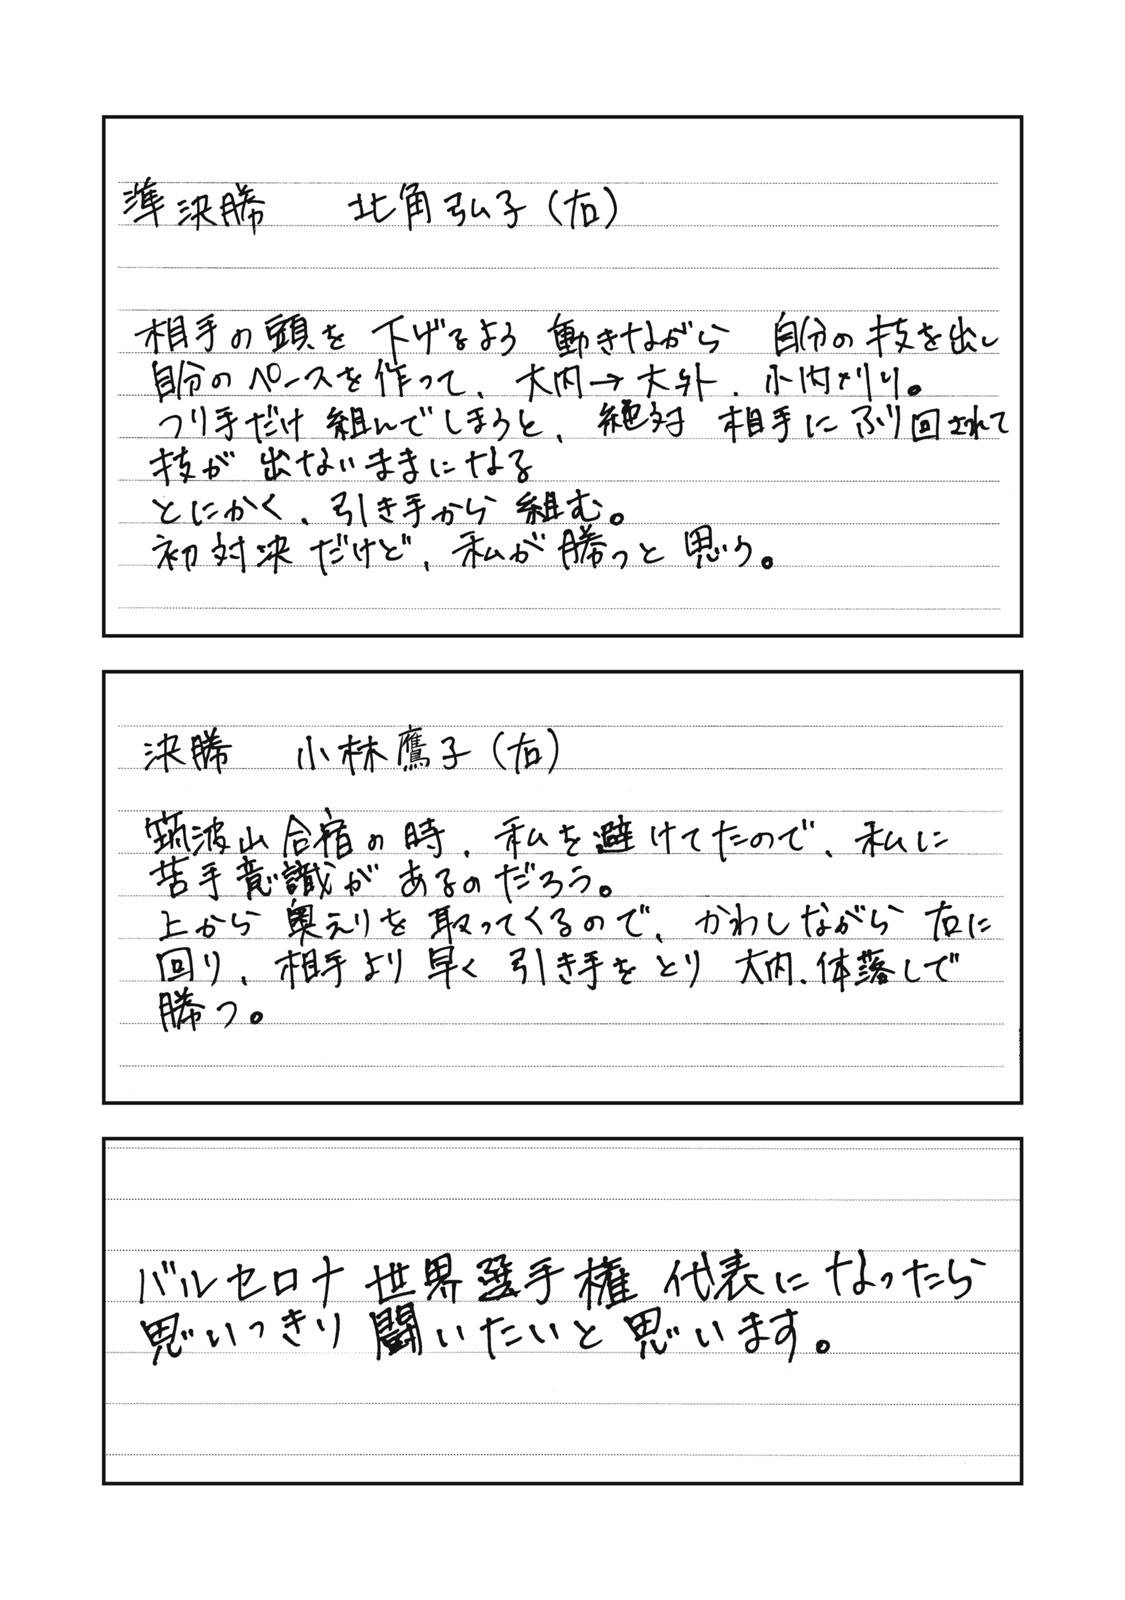 準決勝　北角弘子（右）
相手の頭を下げるよう動きながら自分の技を出し
自分のペースを作って、大内→大外、小内刈り。
つり手だけ組んでしまうと、絶対相手にふり回されて
技が出ないままになる
とにかく、引き手から組む。
初対決だけど、私が勝つと思う。
決勝　小林鷹子（右）
筑波山合宿の時、私を避けてたので、私に
苦手意識があるのだろう。
上から奥えりを取ってくるので、かわしながら右に
回り、相手より早く引き手をとり大内、体落しで
勝つ。
バルセロナ世界選手権代表になったら
思いっきり闘いたいと思います。